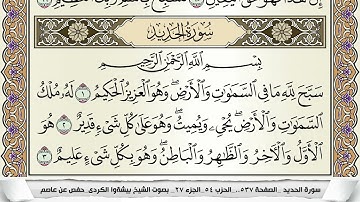 سُورَةُ الحَدِيدِ
بِسْمِ ٱللَّهِ ٱلرَّحْمَٰنِ ٱلرَّحِيمِ
سَبَّحَ لِلَّهِ مَا فِي ٱلسَّمَٰوَٰتِ وَٱلْأَرْضِ وَهُوَ ٱلْعَزِيزُ ٱلْحَكِيمُ ١ لَهُۥ مُلْكُ
ٱلسَّمَٰوَٰتِ وَٱلْأَرْضِ يُحْيِۦ وَيُمِيتُ وَهُوَ عَلَىٰ كُلِّ شَىْءٍ قَدِيرٌ ٢ هُوَ
ٱلْأَوَّلُ وَٱلْءَاخِرُ وَٱلظَّٰهِرُ وَٱلْبَاطِنُ وَهُوَ بِكُلِّ شَىْءٍ عَلِيمٌ ٣
سورة الحديد _الصفحة ٥٣٧_ الحزب ٥٤ _الجزء ٢٧_ بصوت الشيخ بيشةوا الكردي_ حفص عن عاصم